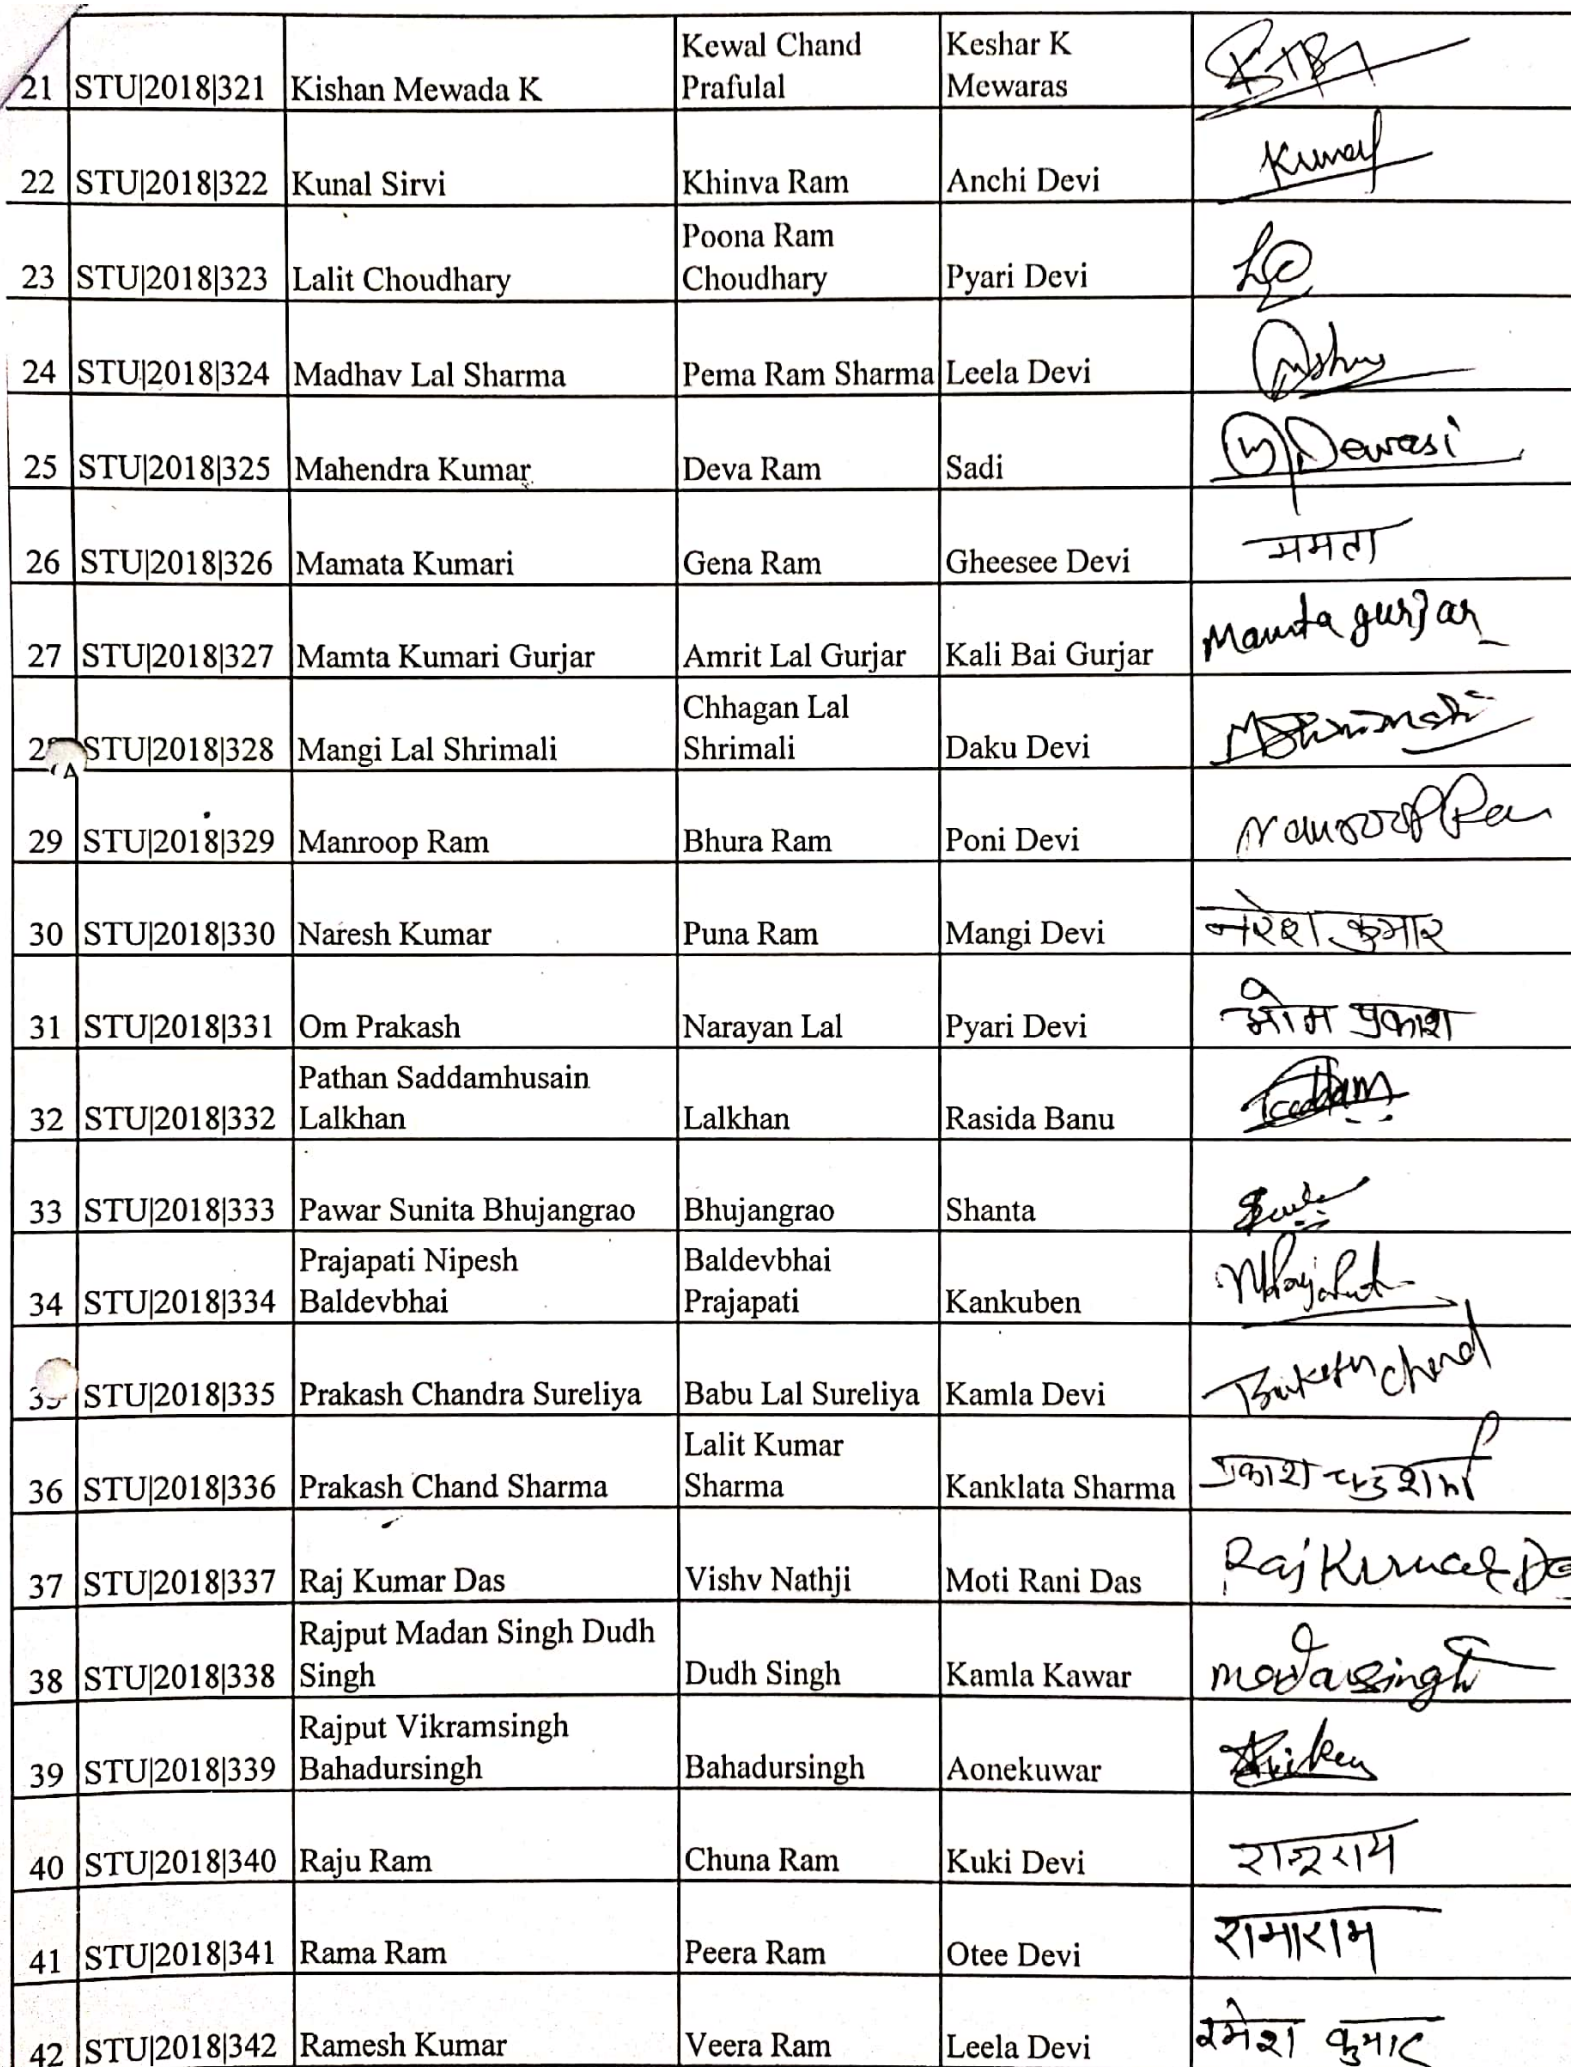 Kewal Chand Keshar K
21 STU|2018|321 Kishan Mewada K Prafulal Mewaras
22 STU|2018|322 Kunal Sirvi Khinva Ram Anchi Devi Kunal
Poona Ram
23 STU|2018|323 Lalit Choudhary Choudhary Pyari Devi
24 STU|2018|324 Madhav Lal Sharma Pema Ram Sharma Leela Devi
25 STU|2018|325 Mahendra Kumar Deva Ram Sadi Dewasi
26 STU|2018|326 Mamata Kumari Gena Ram Gheesee Devi ममता
27 STU|2018|327 Mamta Kumari Gurjar Amrit Lal Gurjar Kali Bai Gurjar Mamta gurjar
Chhagan Lal
STU|2018|328 Mangi Lal Shrimali Shrimali Daku Devi
29 STU|2018|329 Manroop Ram Bhura Ram Poni Devi Manroop
30 STU|2018|330 Naresh Kumar Puna Ram Mangi Devi नरेश कुमार
31 STU|2018|331 Om Prakash Narayan Lal Pyari Devi ओम प्रकाश
Pathan Saddamhusain
32 STU|2018|332 Lalkhan Lalkhan Rasida Banu
33 STU|2018|333 Pawar Sunita Bhujangrao Bhujangrao Shanta
Prajapati Nipesh Baldevbhai
34 STU|2018|334 Baldevbhai Prajapati Kankuben
STU|2018|335 Prakash Chandra Sureliya Babu Lal Sureliya Kamla Devi
Lalit Kumar
36 STU|2018|336 Prakash Chand Sharma Sharma Kanklata Sharma प्रकाश चन्द्र शर्मा
37 STU|2018|337 Raj Kumar Das Vishv Nathji Moti Rani Das Raj Kumar
Rajput Madan Singh Dudh
38 STU|2018|338 Singh Dudh Singh Kamla Kawar madansingh
Rajput Vikramsingh
39 STU|2018|339 Bahadursingh Bahadursingh Aonekuwar
40 STU|2018|340 Raju Ram Chuna Ram Kuki Devi राजूराम
41 STU|2018|341 Rama Ram Peera Ram Otee Devi रामाराम
42 STU|2018|342 Ramesh Kumar Veera Ram Leela Devi रमेश कुमार